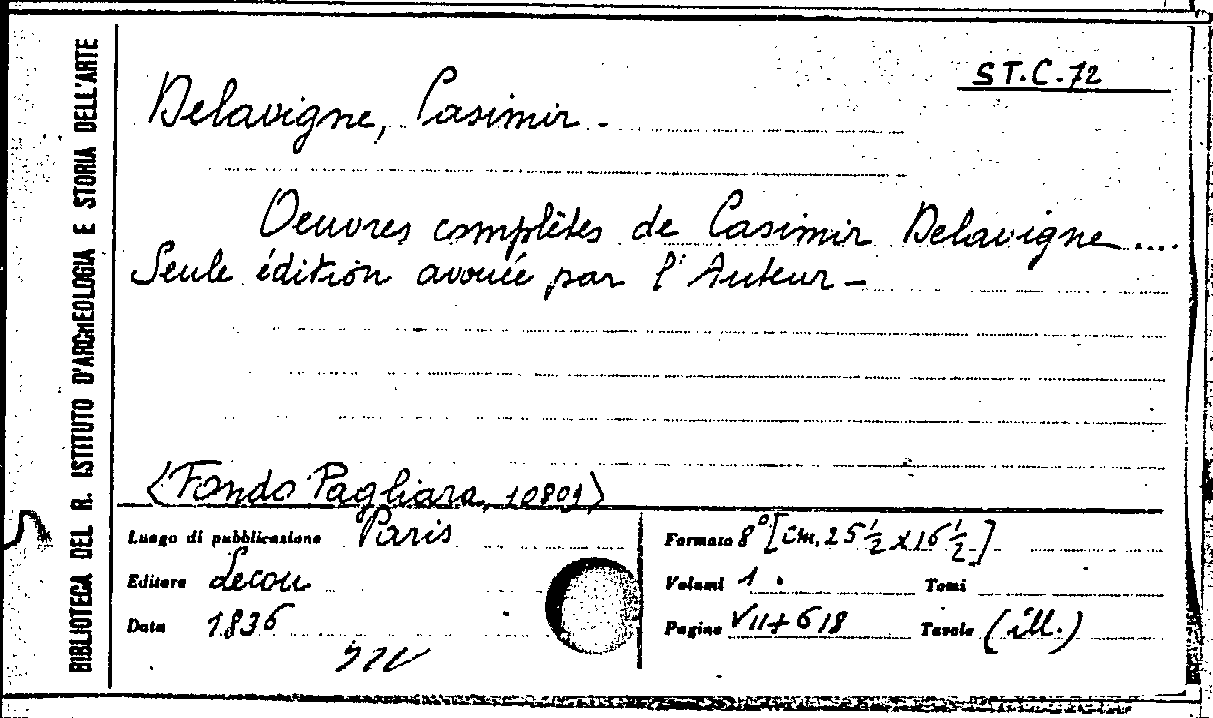 BIBLIOTECA DEL R. ISTITUTO D'ARCHEOLOGIA E STORIA DELL'ARTE
ST.C.72
Delavigne, Casimir -
Oeuvres complètes de Casimir Delavigne ....
Seule édition avouée par l'Auteur -
(Fondo Pagliara, 10809)
Luogo di pubblicazione Paris
Editore Lecou
Data 1836
Formato 8° [cm. 25 ½ x 16 ½]
Volumi 1. Tomi
Pagine VII+618 Tavole (ill.)